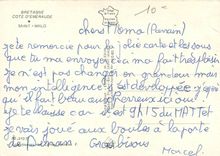 BRETAGNE
COTE D'EMERAUDE
SAINT-MALO
10
cher Toma (Parrain)
je te remercie pour la jolie carte et les sous
que tu ma envoyé ça ma fait très plaisir
Je n'est pas changer en grandeur mais
mon intelligence est développée j'
qu'il fait beau aux Porreux ici oui!
je te laisse car il est 9h15 du MATT et
je vais joué aux boules à la porte
de Dinan. Gros bisous
Marcel